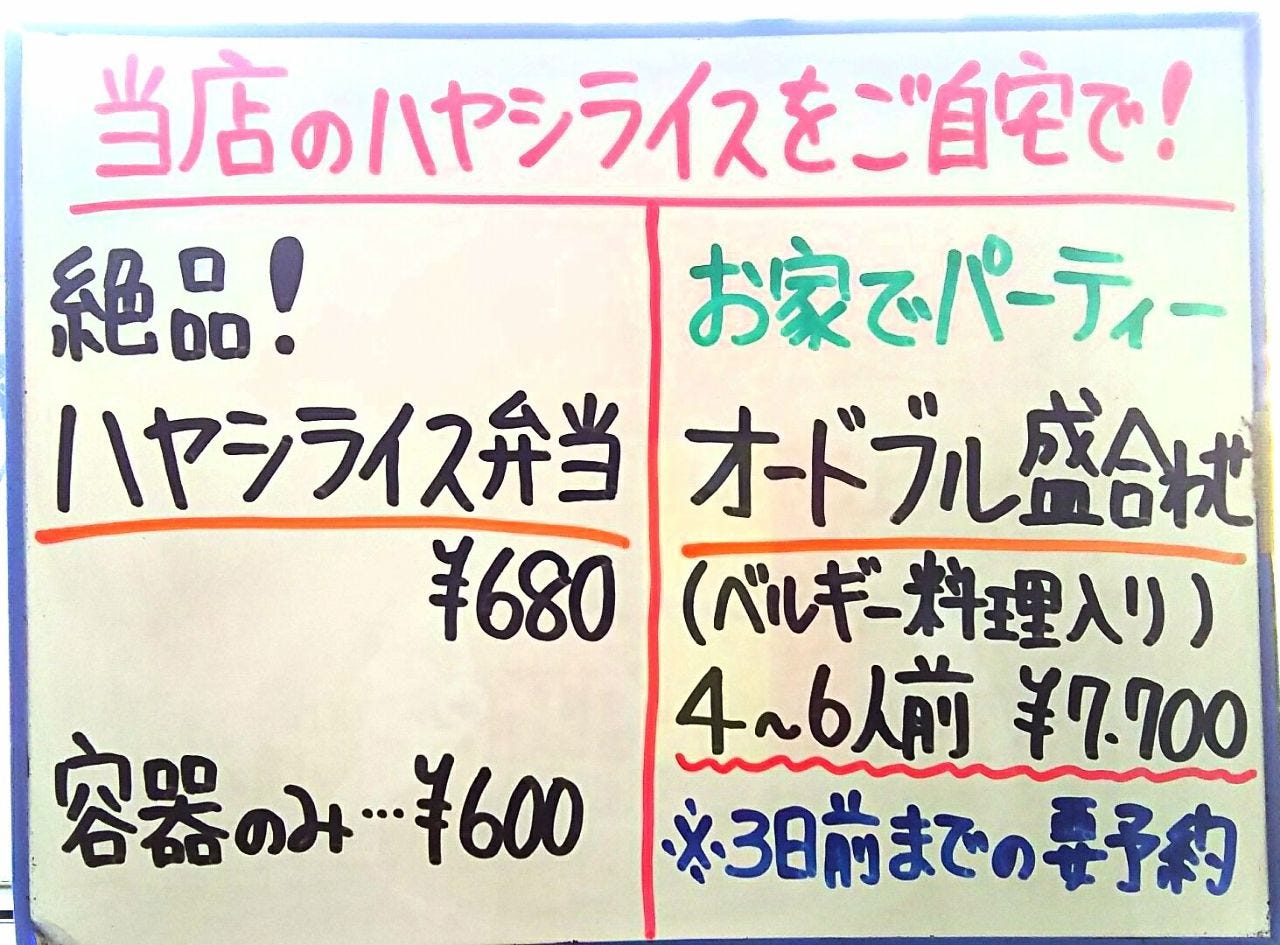 当店のハヤシライスをご自宅で!
絶品!
ハヤシライス弁当
¥680
容器のみ…¥600
お家でパーティー
オードブル盛合わせ
(ベルギー料理入り)
4~6人前 ¥7.700
※3日前までの要予約